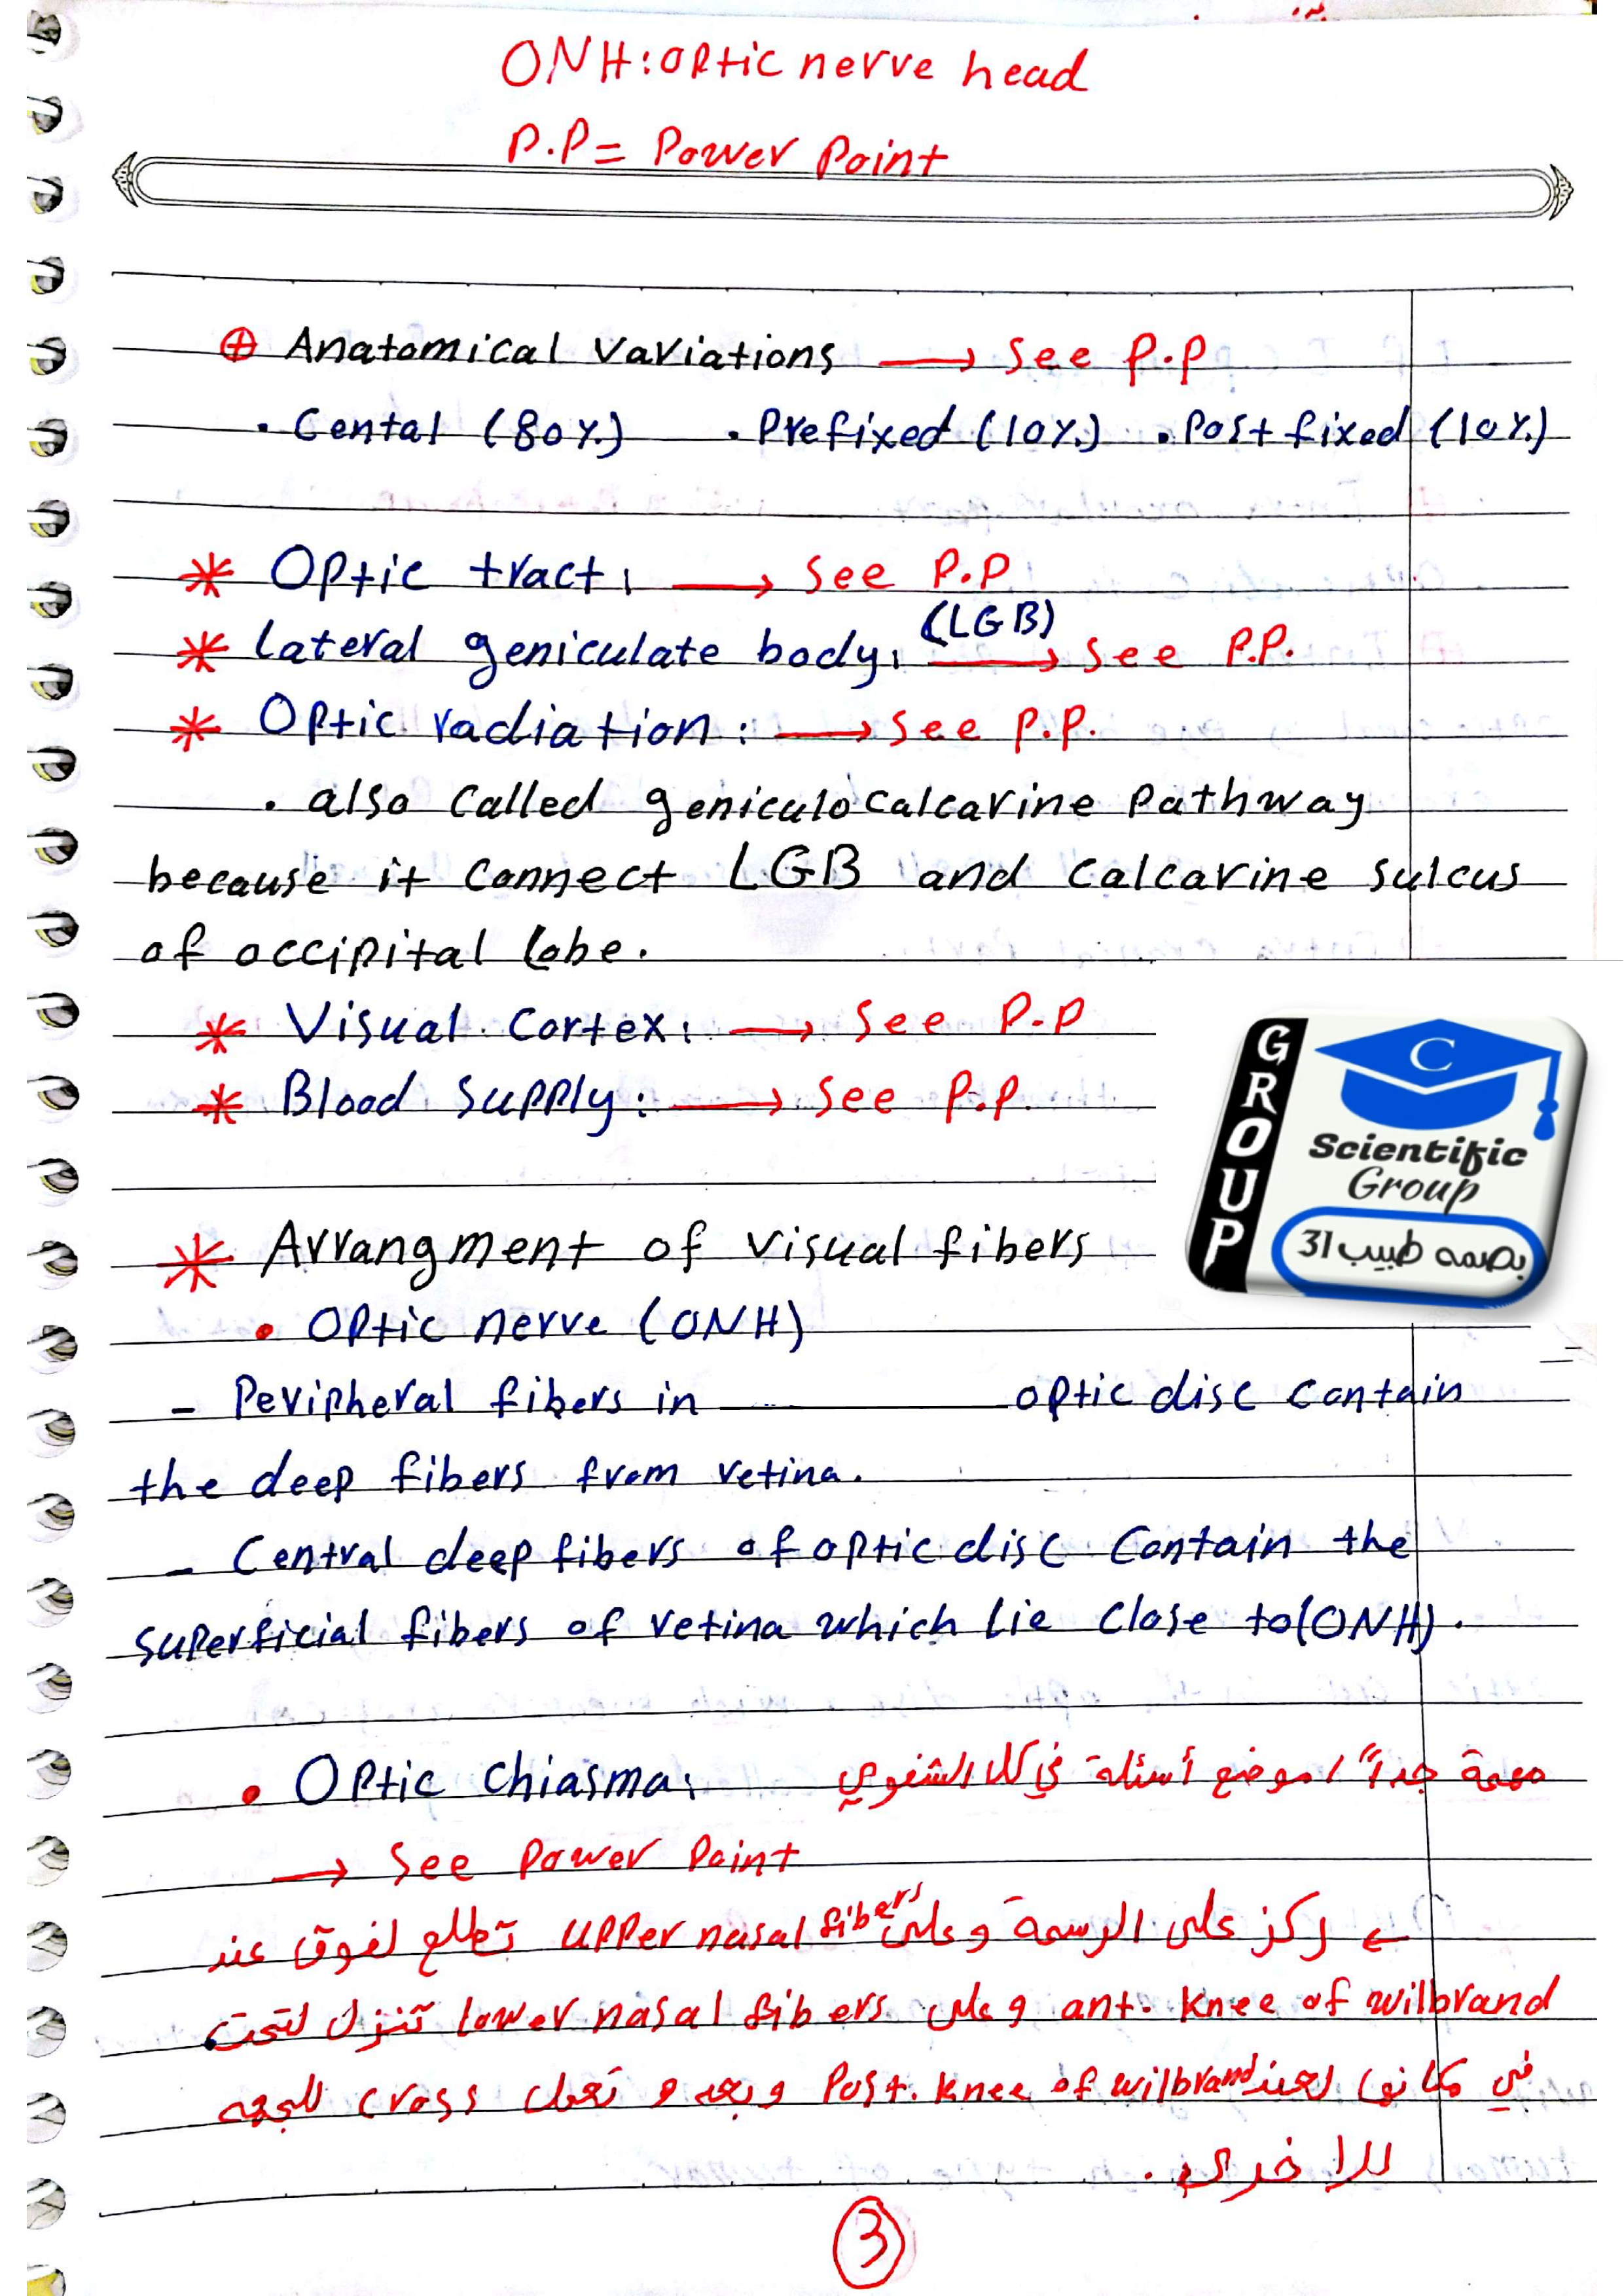 ONH: optic nerve head
P.P = Power Point
⊕ Anatomical variations → see P.P
• Cental (80%.) • Prefixed (10%.) • Post fixed (10%.)
* Optic tract: → see P.P
* Lateral geniculate body: (LGB) → see P.P.
* Optic radiation: → see P.P.
• also called geniculo calcarine pathway
because it connect LGB and calcarine sulcus
of occipital lobe.
* Visual cortex: → see P.P
* Blood supply: → see P.P.
GROUP
C
Scientific
Group
بصمه طبيب 31
* Arrangment of visual fibers
• Optic nerve (ONH)
- Peripheral fibers in optic disc contain
the deep fibers from retina.
- Central deep fibers of optic disc contain the
superficial fibers of retina which lie close to (ONH).
• Optic chiasma: مهمة جداً / موضع أسئلة في الشفوي
→ see Power Point
← ركز على الرسمة وعلى upper nasal fibers تطلع لفوق عند
ant. knee of wilbrand وعلى lower nasal fibers تنزل لتحت
في عند Post. knee of wilbrand وبعد تعمل cross للجهه
الاخرى.
3